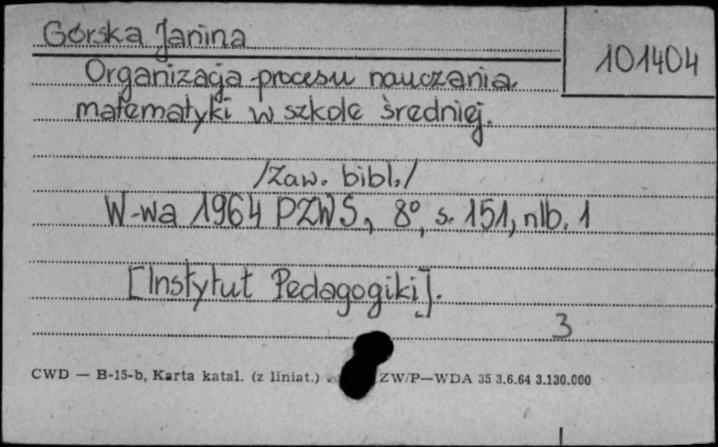 Górska Janina
101404
Organizacja procesu nauczania
matematyki w szkole średniej.
/Zaw. bibl./
W-wa 1964 PZWS, 8°, s. 151, nlb. 1
[Instytut Pedagogiki].
3
CWD — B-15-b, Karta katal. (z liniat.)
ZW/P—WDA 35 3.6.64 3.130.000